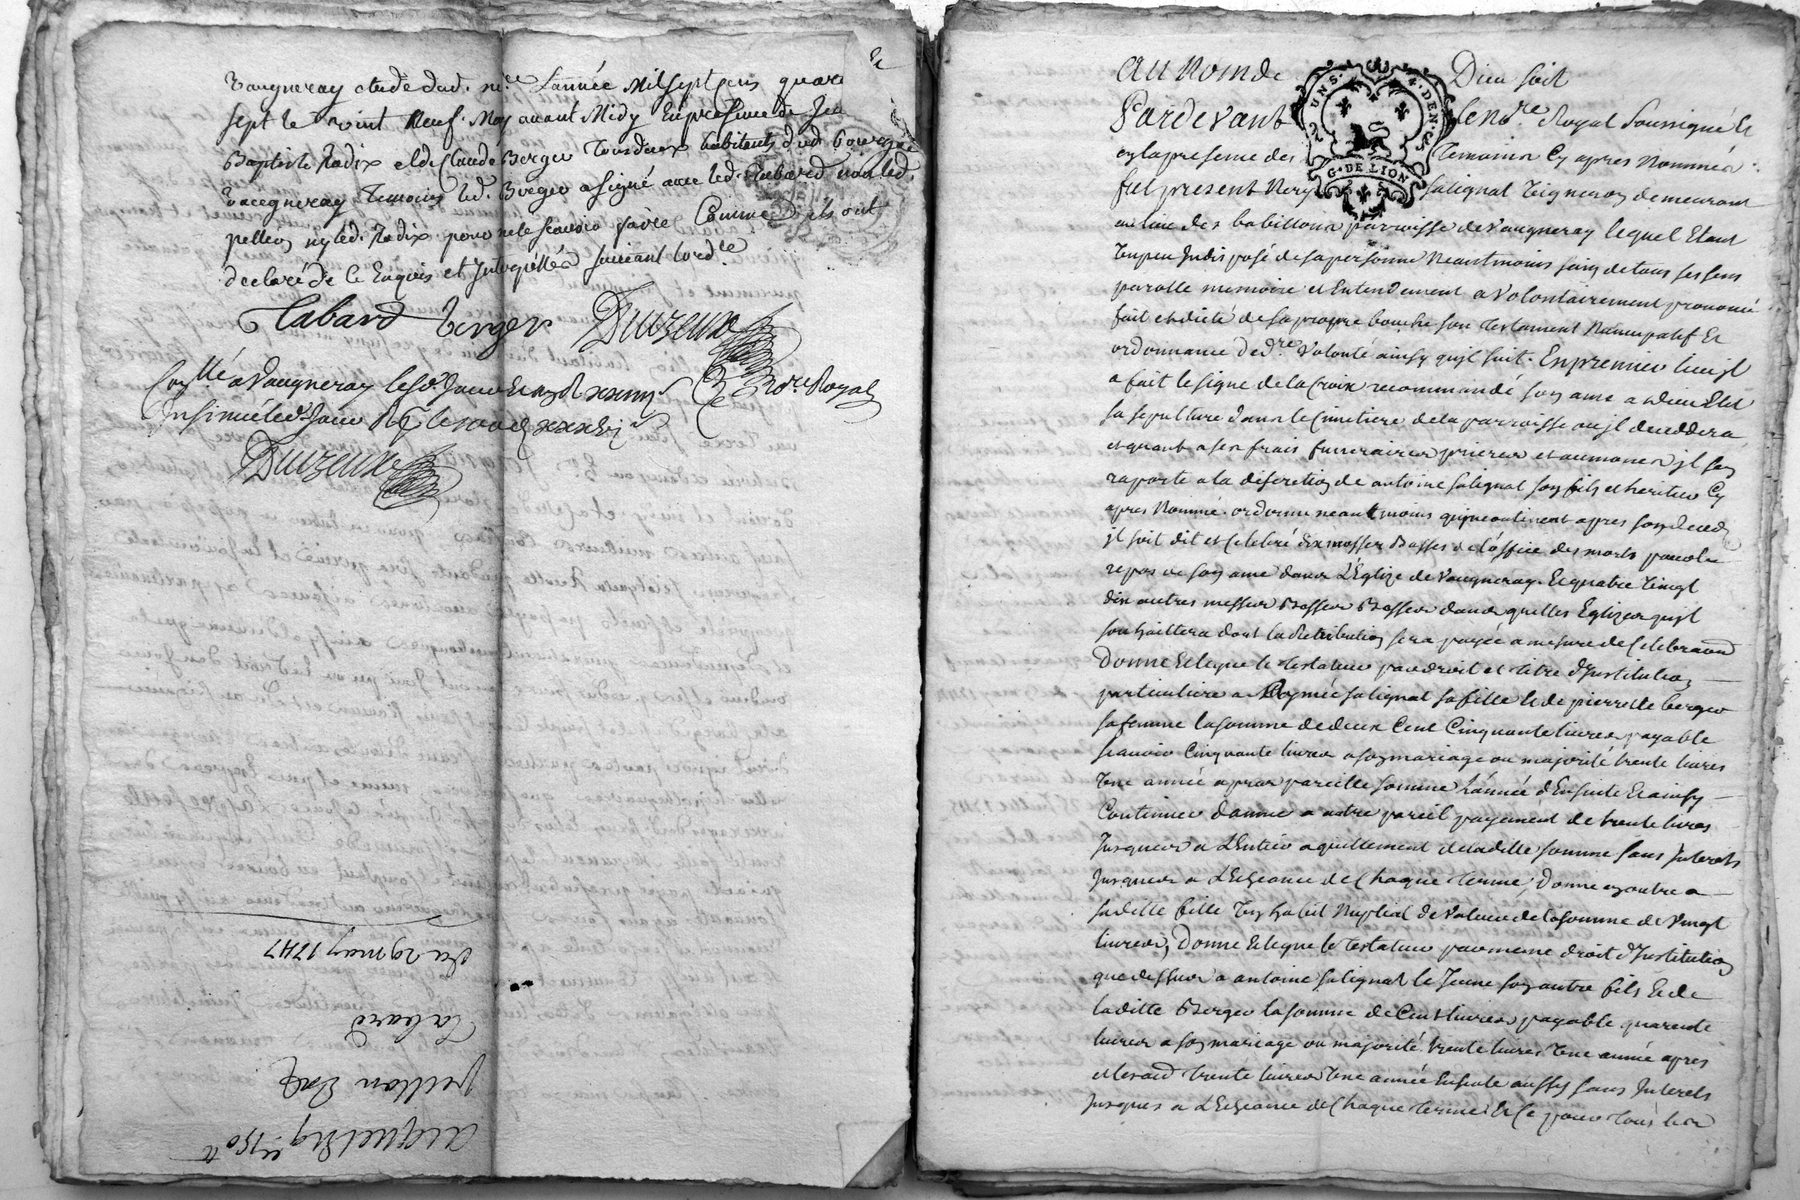 Vaugneray etude dud. n.re L'année Mil sept cens quara
sept le vint neuf May avant Midy En presence de Jea
Baptiste Radix et de Claude Berger Tous deux habitents dud. bourg de
Vaugneray Temoins led. Berger a signé avec led. Clabard non led.
pellion ny led. Radix pour ne le scavoir faire Comme ils ont
declaré de ce Enquis et Interpellés suivant lord.ce
Clabard berger Duvzeux
Con.llé a Vaugneray le sd. Jour
n.re Royal
Insinué led. Jour
Duvzeux
Du 29 may 1747
Clabard
pellion
acquet
Au Nom de Dieu soit
Pardevant le no.re Royal soussigné et
en la presence des Temoins cy apres Nommés
fut present Rey salignat Vigneron demeurant
au lieu des babillons parroisse de Vaugneray lequel Etant
Un peu Indisposé de sa personne Neantmoins sain de tous ses sens
parolle memoire et Entendement a Volontairement prononcé
fait et dicté de sa propre bouche son testament Nuncupatif Et
ordonnance de d.re Volonté ainsy quil suit. En premier lieu jl
a fait le signe de la Croix recommandé son ame a Dieu Elet
sa sepulture dans le Cimetiere de la parroisse ou jl deceddera
et quant a ses frais funeraires prieres et aumones jl sen
raporte a la discretion de antoine salignat son fils et heritier Cy
apres Nommé. ordonne neantmoins quincontinent apres son deced
jl soit dit et Celebré dix messes Basses de l'office des morts pour le
repos de son ame dans L'Eglize de Vaugneray. Et quatre Vingt
dix autres messes Basses dans quelles Eglizes quil
souhaittera dont la Retribution sera payée a mesure de Celebraon
Donne et legue le testateur par droit et titre d'Institution
particuliere a Aymée salignat sa fille et de pierrette berger
sa femme la somme de deux Cent Cinquante livres payable
scavoir Cinquante livres a son mariage ou majorité trente livres
Une année apres pareille somme L'année d'Ensuite Et ainsy
Continuer d'année a autre pareil payement de trente livres
Jusques a L'Entier aquittement de laditte somme sans Interets
Jusques a L'Echeance de Chaque terme; Donne en outre a
saditte fille Un habit Nuptial de Valeur de la somme de Vingt
livres; Donne et legue le testateur par meme droit d'Institution
que dessus a antoine salignat le Jeune son autre fils Et de
laditte Berger la somme de Cent livres payable quarente
livres a son mariage ou majorité trente livres Une année apres
et les aud. trente livres Une année Ensuite aussy sans Interets
Jusques a L'Echeance de Chaque terme Et ce pour tous les
G.DE LION